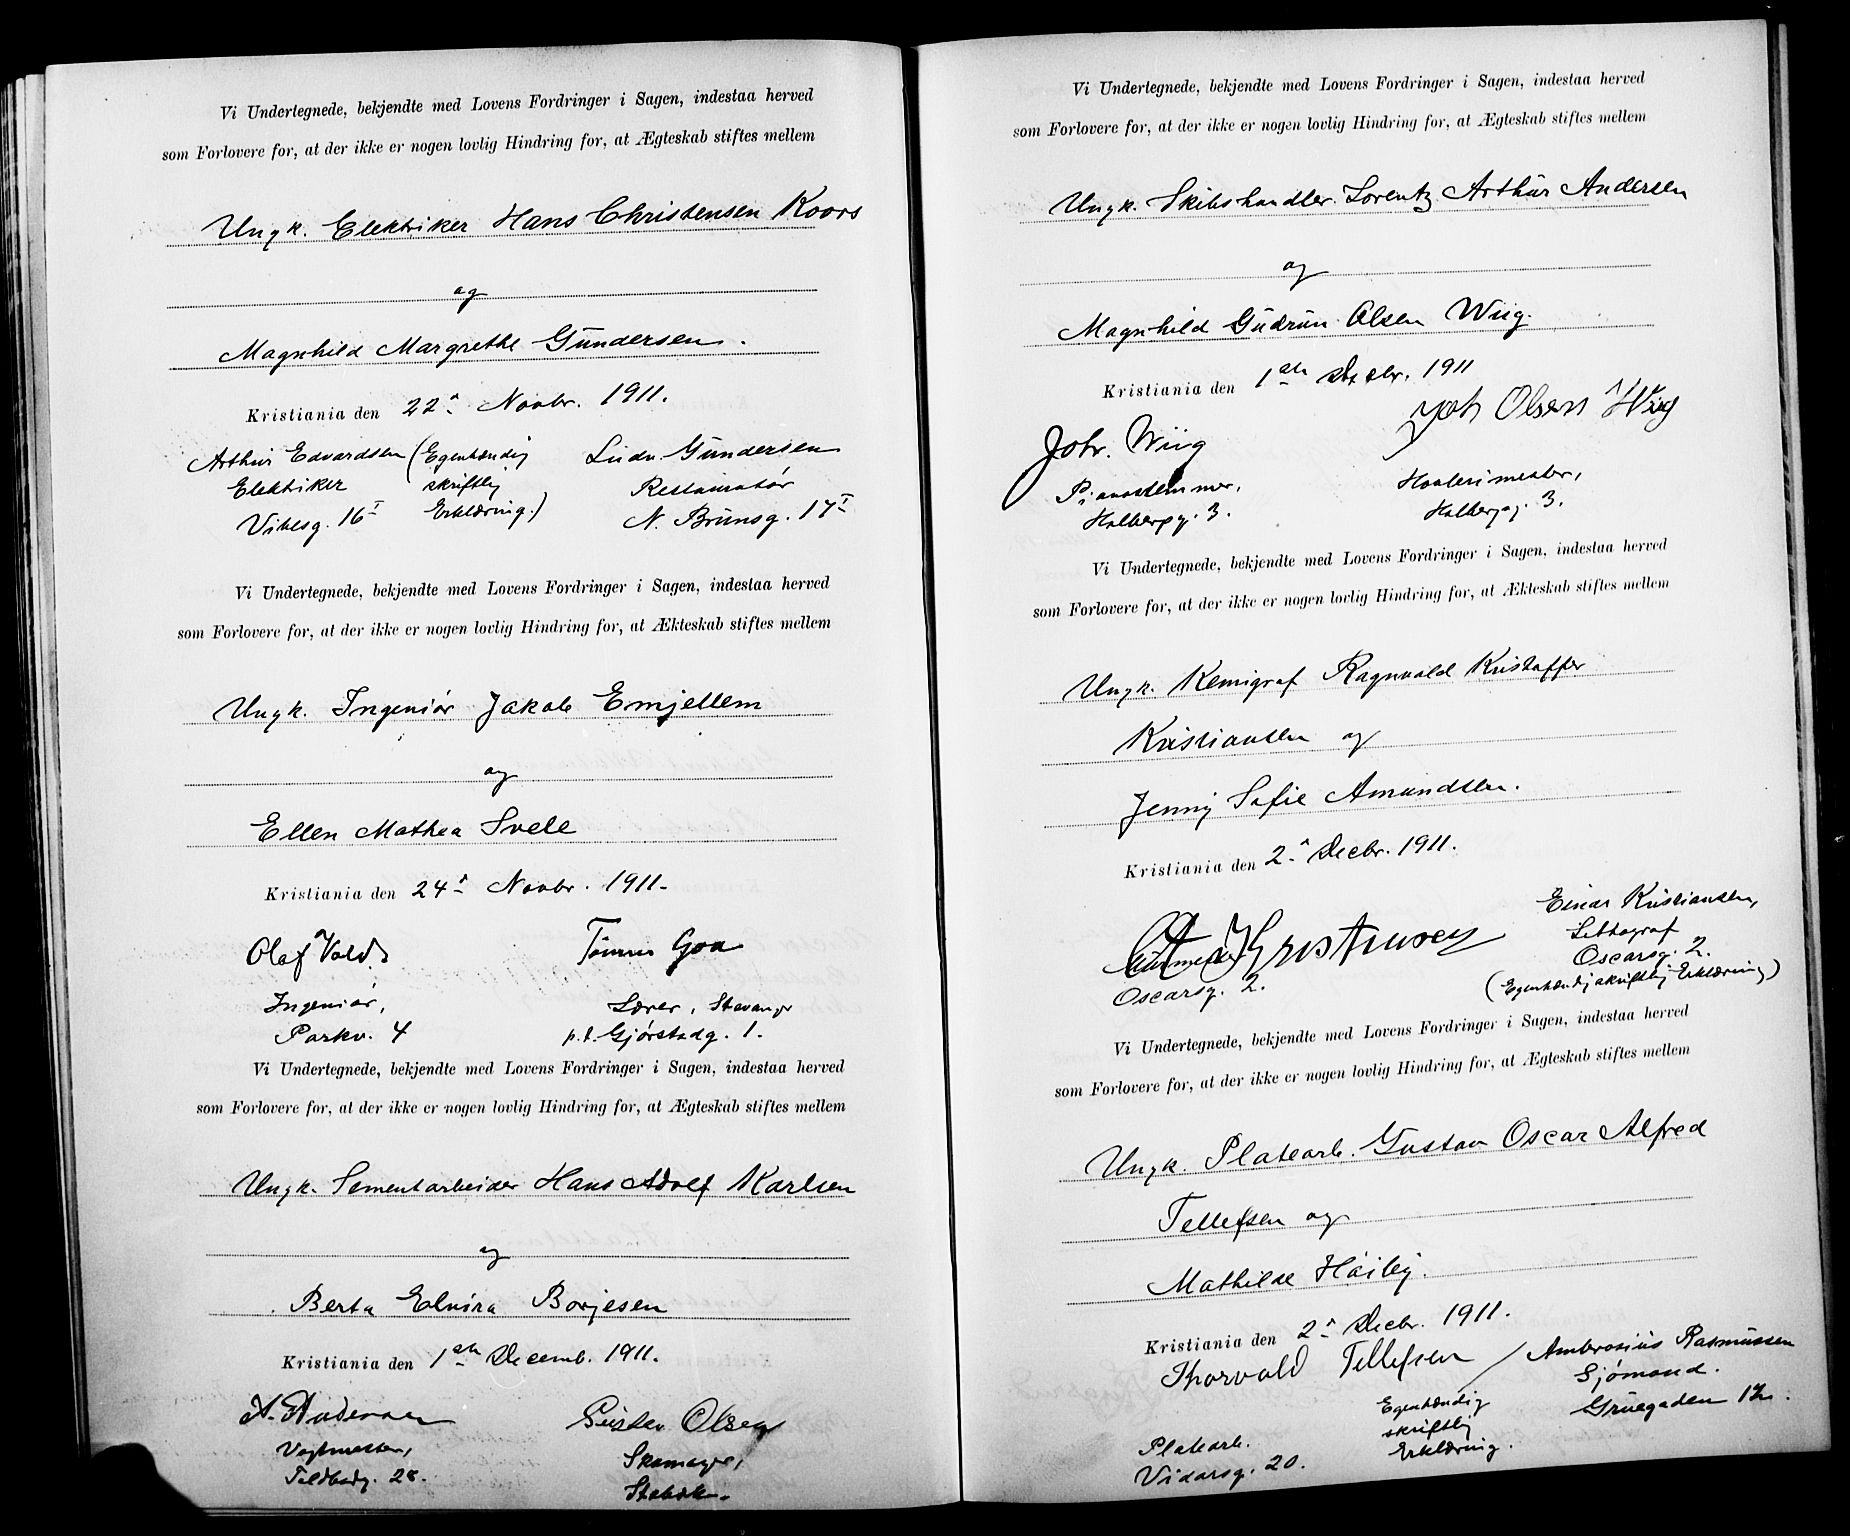 Vi Undertegnede, bekjendte med Lovens Fordringer i Sagen, indestaa herved
som Forlovere for, at der ikke er nogen lovlig Hindring for, at Ægteskab stiftes mellem
Ungk. Elektriker Hans Christensen Koors
og
Magnhild Margrethe Gundersen.
Kristiania den 22n Novbr. 1911.
Arthur Edvardsen (Egenhændig
Elektriker skriftlig
Vibesg. 16 I Erklæring.)
Ludv. Gundersen
Restauratør
N. Brunsg. 17 I
Vi Undertegnede, bekjendte med Lovens Fordringer i Sagen, indestaa herved
som Forlovere for, at der ikke er nogen lovlig Hindring for, at Ækteskab stiftes mellem
Ungk. Ingeniør Jakob Emjellem
og
Ellen Mathea Svele
Kristiania den 24n Novbr. 1911.
Olaf Vold
Ingeniør,
Parkv. 4
Goa
Lærer, Stavanger
p.t. Gjørstadg. 1.
Vi Undertegnede, bekjendte med Lovens Fordringer i Sagen, indestaa herved
som Forlovere for, at der ikke er nogen lovlig Hindring for, at Ægteskab stiftes mellem
Ungk. Sementarbeider Hans Adolf Karlsen
og
Berta Elvira Borjesen
Kristiania den 1ste Decemb. 1911.
A. Andersen
Vagtmester,
Toldbodg. 28.
Gustav Olsen
Skomager,
Stabæk.
Vi Undertegnede, bekjendte med Lovens Fordringer i Sagen, indestaa herved
som Forlovere for, at der ikke er nogen lovlig Hindring for, at Ægteskab stiftes mellem
Ungk. Skibshandler Lorentz Arthur Andersen
og
Magnhild Gudrun Olsen Wiig.
Kristiania den 1ste Decbr. 1911
Johr. Wiig
Pianostemmer,
Holbergg. 3.
Joh Olsen Wiig
Hovlerimester,
Holbergg. 3.
Vi Undertegnede, bekjendte med Lovens Fordringer i Sagen, indestaa herved
som Forlovere for, at der ikke er nogen lovlig Hindring for, at Ækteskab stiftes mellem
Ungk. Kemigraf Ragnvald Kristoffer
Kristiansen og
Jenny Sofie Amundsen.
Kristiania den 2n Decbr. 1911.
Kristiansen
Oscarsg. 2.
Einar Kristiansen,
Littograf
Oscarsg. 2.
(Egenhændig skriftlig Erklæring)
Vi Undertegnede, bekjendte med Lovens Fordringer i Sagen, indestaa herved
som Forlovere for, at der ikke er nogen lovlig Hindring for, at Ægteskab stiftes mellem
Ungk. Platearb. Gustav Oscar Alfred
Tellefsen og
Mathilde Høiby.
Kristiania den 2n Decbr. 1911.
Thorvald Tellefsen
Platearb.
Vidarsg. 20.
Egenhændig
skriftlig
Erklæring.
Ambrosius Rasmussen
Sjømand.
Gruegaden 12.